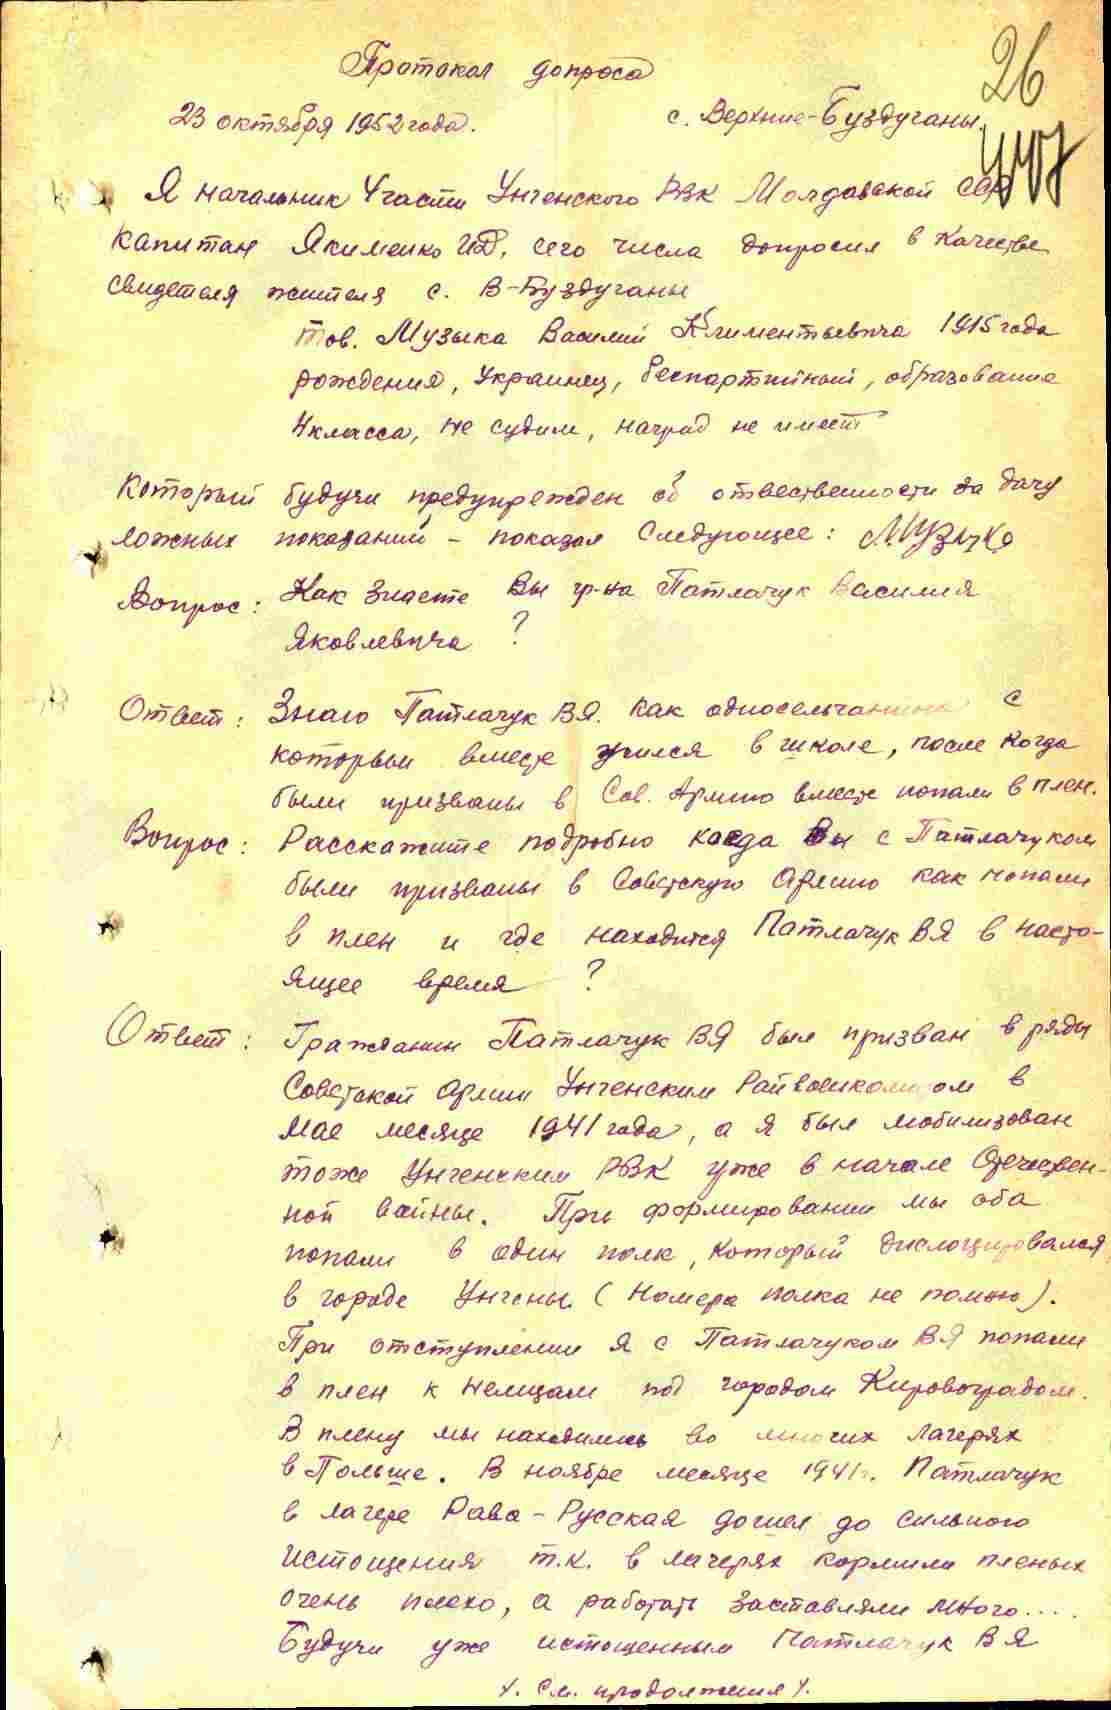 26
Протокол допроса
23 октября 1952 года. с. Верхние-Буздуганы.
Я начальник 4 части Унгенского РВК Молдавской ССР
капитан Якименко И.Д. сего числа допросил в качестве
свидетеля жителя с. В-Буздуганы
тов. Музыка Василий Климентьевича 1915 года
рождения, украинец, беспартийный, образование
4 класса, не судим, наград не имеет
который будучи предупрежден об отвественности за дачу
ложных показаний – показал следующее: Музыка
Вопрос: Как знаете Вы гр-на Патлачук Василия
Яковлевича ?
Ответ: Знаю Патлачук В.Я. как односельчанина с
которым вместе учился в школе, после когда
были призваны в Сов. Армию вместе попали в плен.
Вопрос: Расскажите подробно когда Вы с Патлачуком
были призваны в Советскую Армию как попали
в плен и где находится Патлачук ВЯ в насто-
ящее время ?
Ответ: Гражданин Патлачук ВЯ был призван в ряды
Советской Армии Унгенским Райвоенкоматом в
мае месяце 1941 года, а я был мобилизован
тоже Унгенским РВК уже в начале Отечествен-
ной войны. При формировании мы оба
попали в один полк, который дислоцировался
в городе Унгены (номера полка не помню).
При отступлении я с Патлачуком ВЯ попали
в плен к немцам под городом Кировоградом.
В плену мы находились во многих лагерях
в Польше. В ноябре месяце 1941 г. Патлачук
в лагере Рава-Русская дошел до сильного
истощения т.к. в лагерях кормили пленых
очень плохо, а работать заставляли много....
Будучи уже истощенным Патлачук ВЯ
См. продолжения